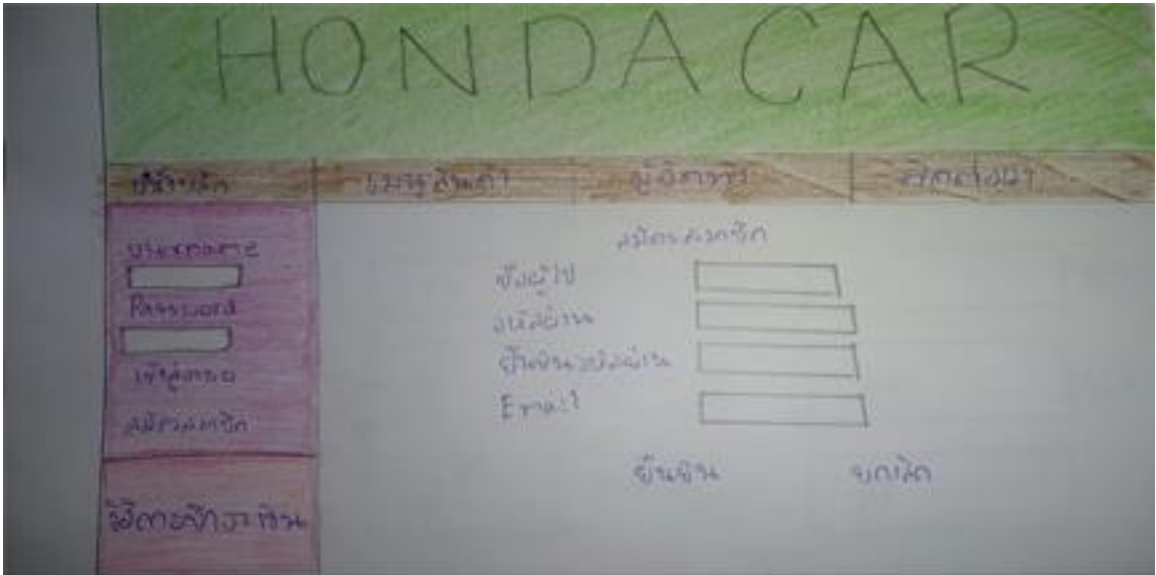 HONDA CAR
หน้าหลัก เมนูสินค้า ผู้จัดทำ ติดต่อเรา
Username
Password
เข้าสู่ระบบ
สมัครสมาชิก
วิธีการชำระเงิน
สมัครสมาชิก
ชื่อผู้ใช้
รหัสผ่าน
ยืนยันรหัสผ่าน
Email
ยืนยัน ยกเลิก